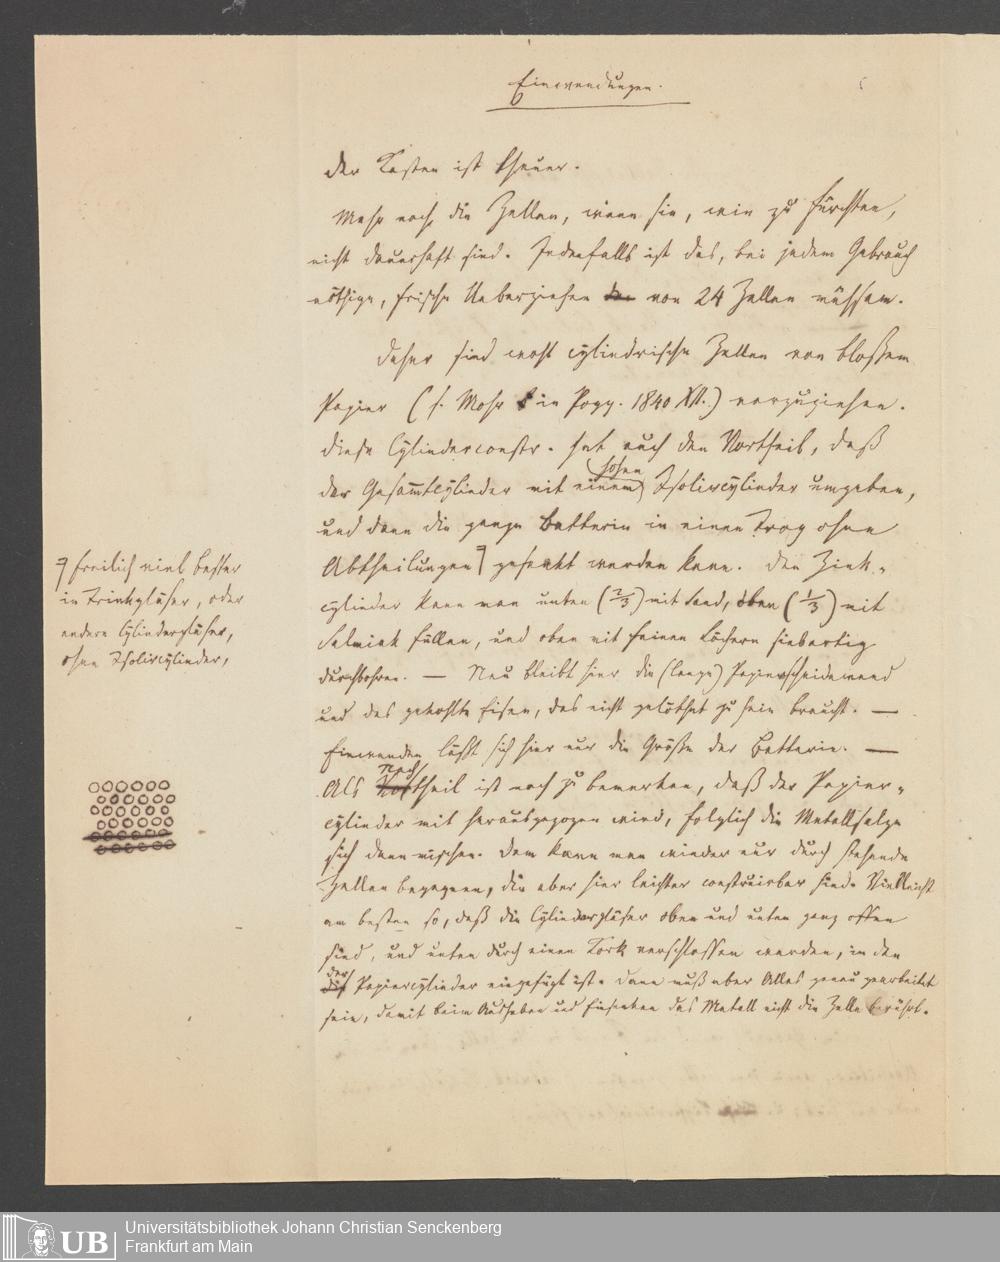 Einwendungen.
Der Kasten ist theuer.
Mehr noch die Zellen, wenn sie, wie zu fürchten,
nicht dauerhaft sind. Jedenfalls ist das, bei jedem Gebrauch
nöthige, frische Ueberziehen von 24 Zellen mühsam.
Daher sind wohl cylindrische Zellen von bloßem
Papier (s. Mohr in Pogg. 1840 XII.) vorzuziehen.
Diese Cylinderconstr. hat auch den Vortheil, daß
der Gesammtcylinder mit einem hohen Isolircylinder umgeben,
und dann die ganze Batterie in einen Trog ohne
Abtheilungen gesenkt werden kann. Den Zink-
cylinder kann man unten (2/3) mit Sand, oben (1/3) mit
Salmiak füllen, und oben mit feinen Löchern siebartig
durchbohren. — Neu bleibt hier die (lange) Papierscheidewand
und das gekohlte Eisen, das nicht gelöthet zu sein braucht. —
Einwenden läßt sich hier nur die Größe der Batterie. —
Als Nachtheil ist noch zu bemerken, daß der Papier-
cylinder mit herausgezogen wird, folglich die Metallsalze
sich dann mischen. Dem kann man wieder nur durch stehende
Zellen begegnen, die aber hier leichter construirbar sind. Vielleicht
am besten so, daß die Cylindergläser oben und unten ganz offen
sind, und unten durch einen Kork verschlossen werden, in den
der Papiercylinder eingefügt ist. Dann muß aber Alles genau gearbeitet
sein, damit beim Ausheben und Einsenken das Metall nicht die Zelle berührt.
freilich viel besser
in Trinkgläser, oder
andere Cylindergläser,
ohne Isolircylinder,
UB
Universitätsbibliothek Johann Christian Senckenberg
Frankfurt am Main